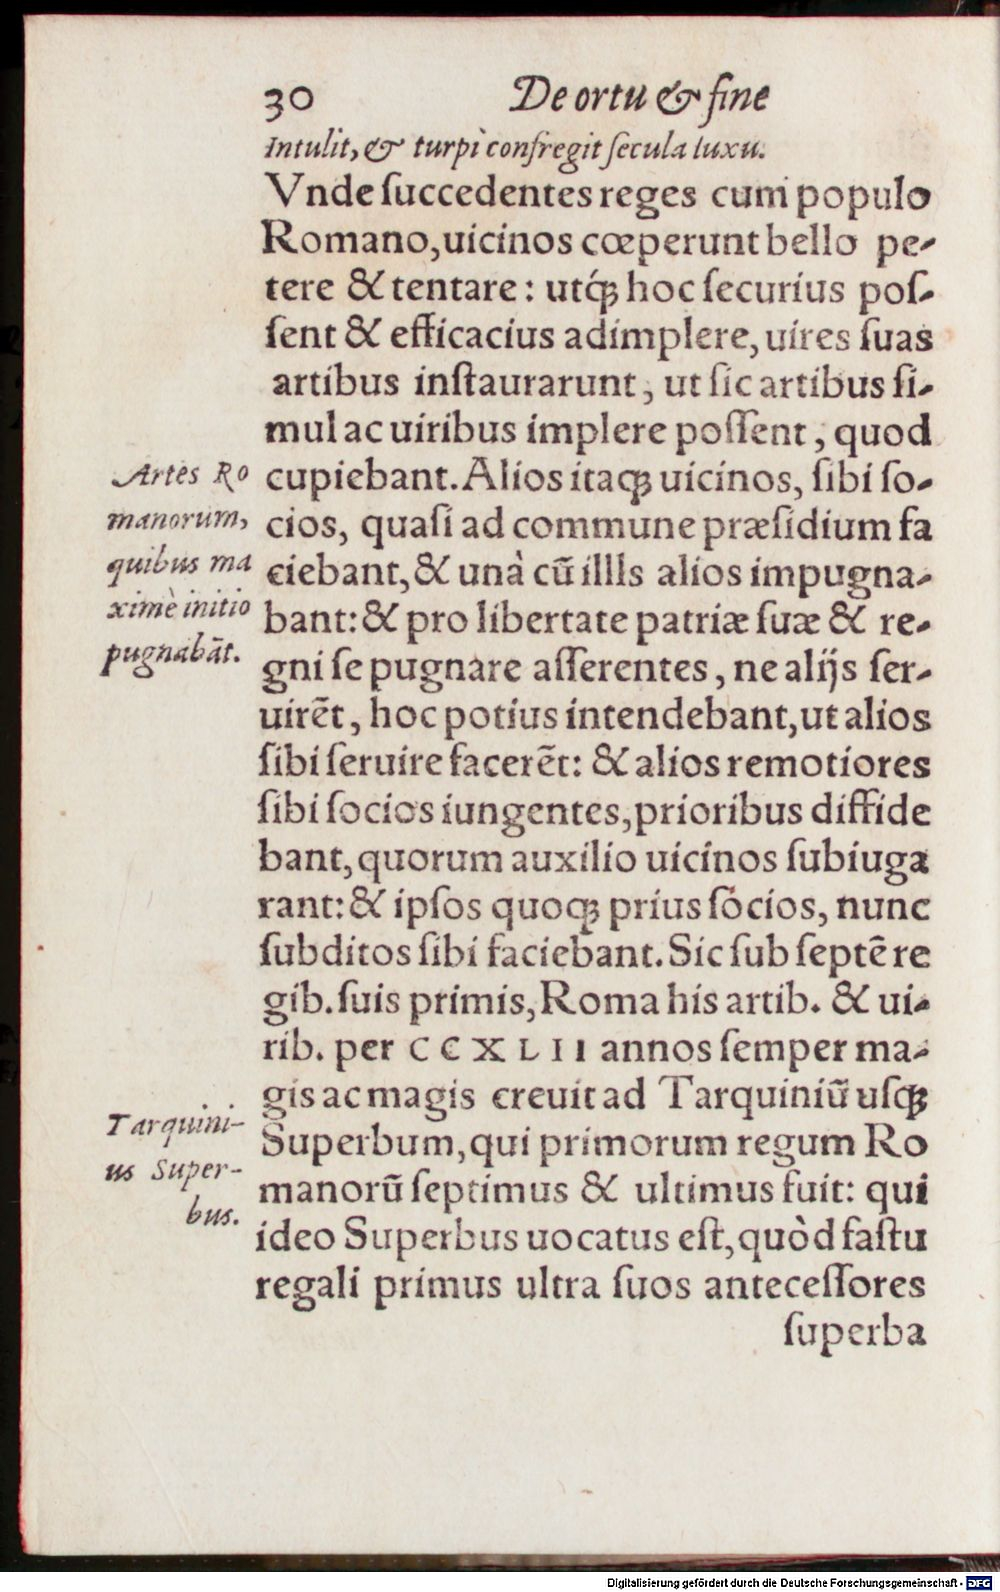 30 De ortu & fine
Intulit, & turpì confregit ſecula luxu.
Vnde ſuccedentes reges cum populo
Romano, uicinos cœperunt bello pe-
tere & tentare: utq́ꝫ hoc ſecurius poſ-
ſent & efficacius adimplere, uires ſuas
artibus inſtaurarunt, ut ſic artibus ſi-
mul ac uiribus implere poſſent, quod
cupiebant. Alios itaqꝫ uicinos, ſibi ſo-
cios, quaſi ad commune præſidium fa
ciebant, & unà cũ illIs alios impugna-
bant: & pro libertate patriæ ſuæ & re-
gni ſe pugnare aſſerentes, ne alijs ſer-
uirẽt, hoc potius intendebant, ut alios
ſibi ſeruire facerẽt: & alios remotiores
ſibi ſocios iungentes, prioribus diffide
bant, quorum auxilio uicinos ſubiuga
rant: & ipſos quoqꝫ prius ſócios, nunc
ſubditos ſibi faciebant. Sic ſub ſeptẽ re
gib. ſuis primis, Roma his artib. & ui-
rib. per CCXLII annos ſemper ma-
gis ac magis creuit ad Tarquiniũ uſqꝫ
Superbum, qui primorum regum Ro
manorũ ſeptimus & ultimus fuit: qui
ideo Superbus uocatus eſt, quòd faſtu
regali primus ultra ſuos anteceſſores
ſuperba
Artes Ro
manorum,
quibus ma
ximè initio
pugnabãt.
Tarquini-
us Super-
bus.
Digitalisierung gefördert durch die Deutsche Forschungsgemeinschaft - DFG